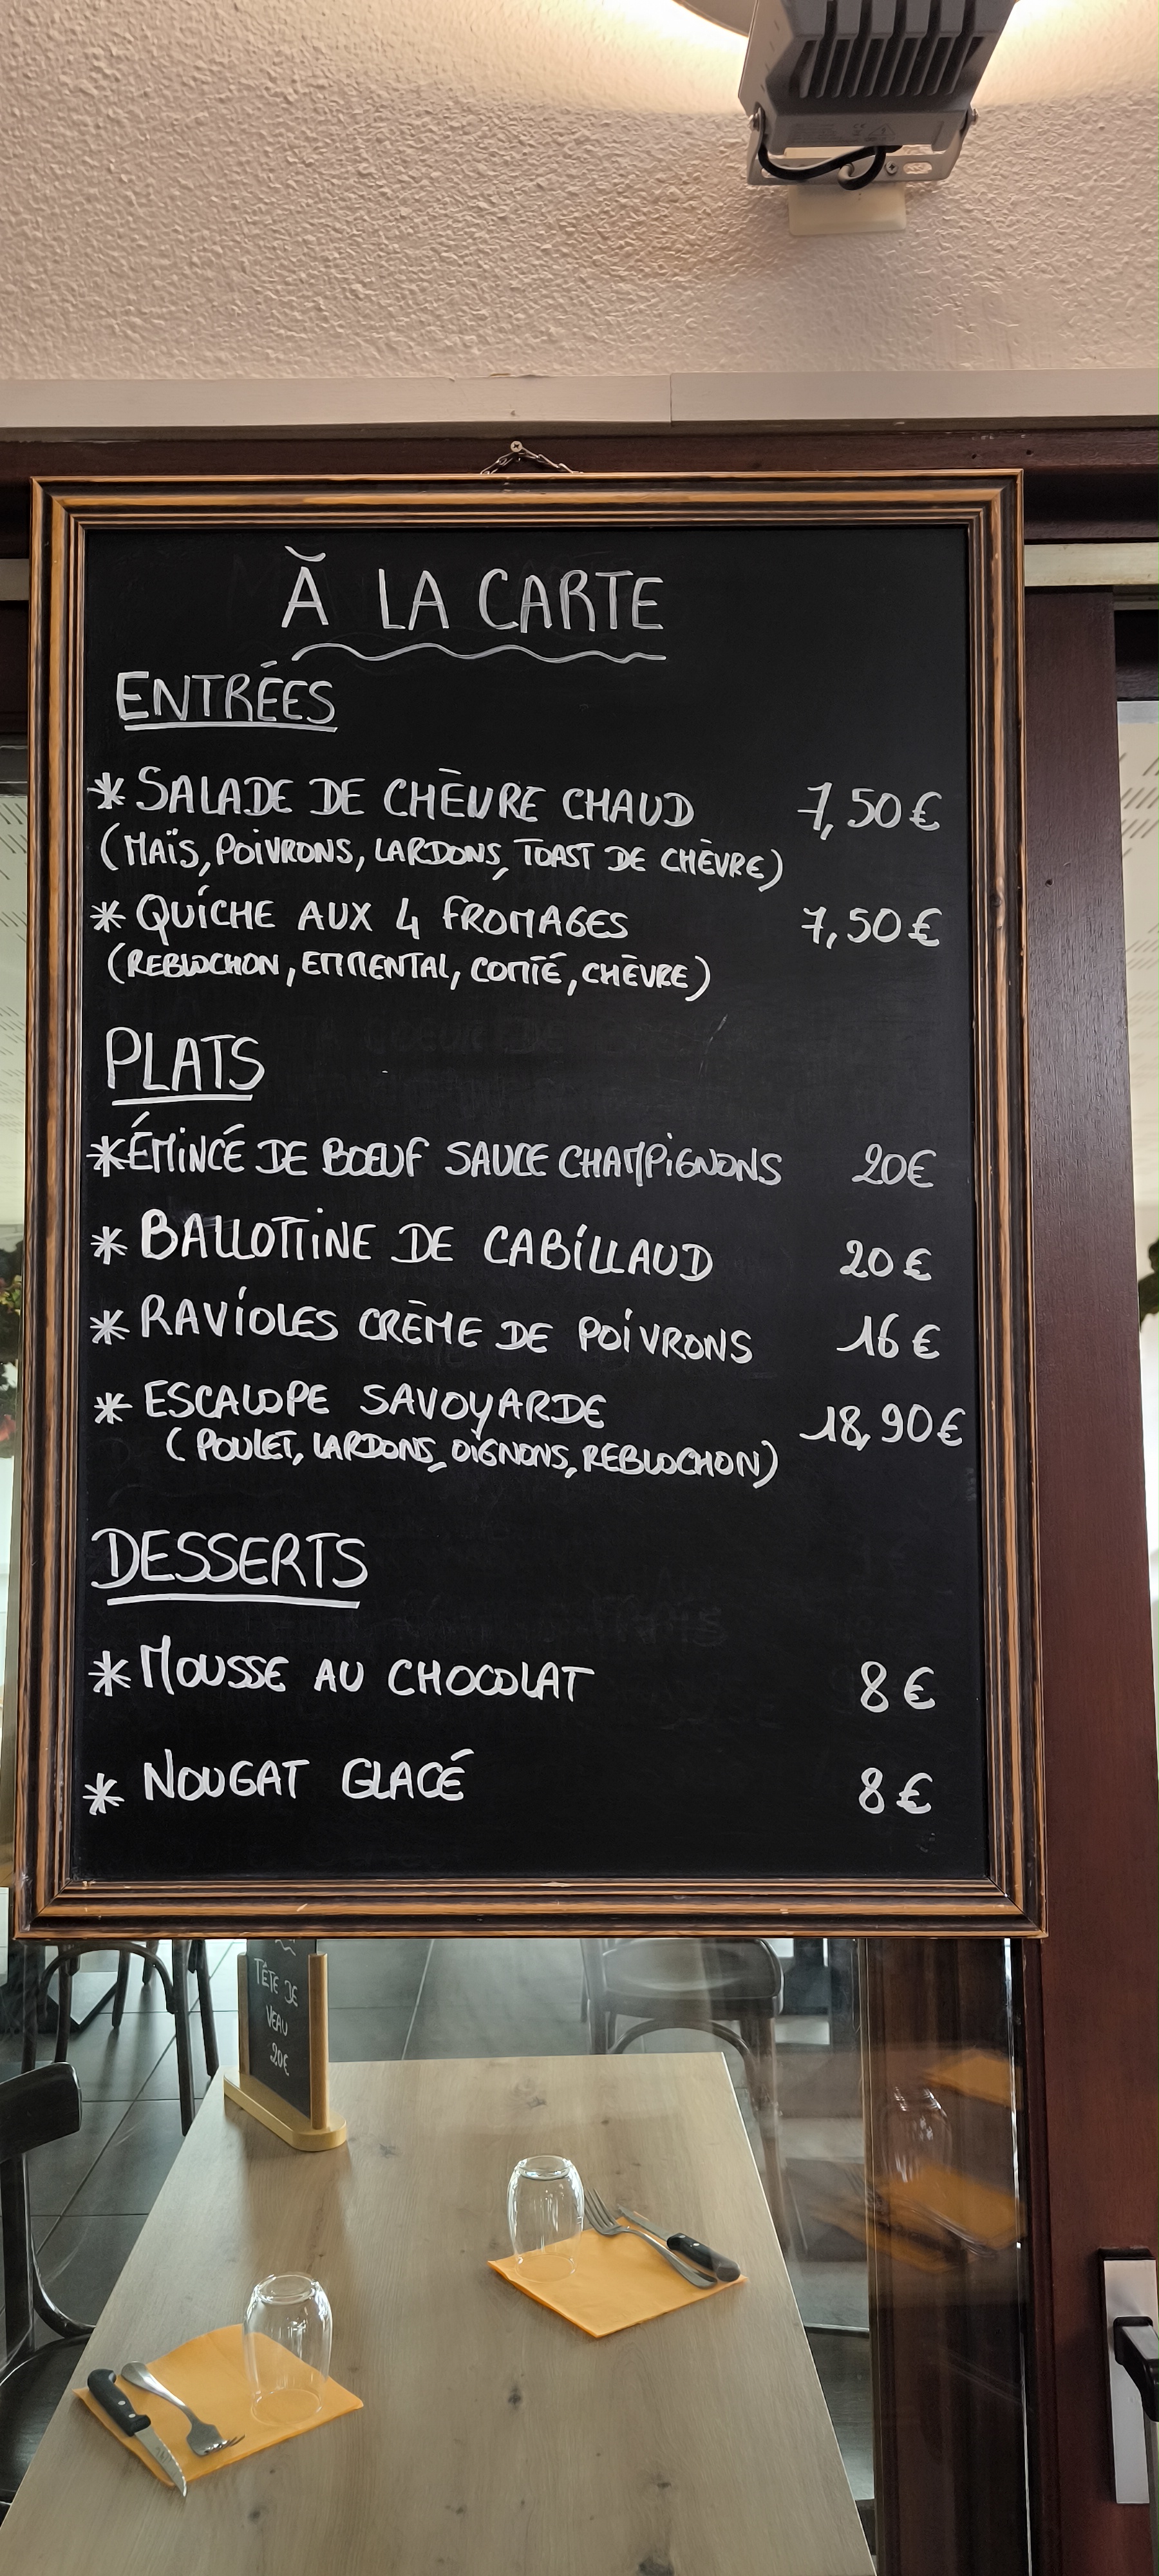 À LA CARTE
ENTRÉES
* SALADE DE CHÈVRE CHAUD 7,50€
(MAÏS, POIVRONS, LARDONS, TOAST DE CHÈVRE)
* QUICHE AUX 4 FROMAGES 7,50€
(REBLOCHON, EMMENTAL, COMTÉ, CHÈVRE)
PLATS
* ÉMINCÉ DE BŒUF SAUCE CHAMPIGNONS 20€
* BALLOTTINE DE CABILLAUD 20€
* RAVIOLES CRÈME DE POIVRONS 16€
* ESCALOPE SAVOYARDE 18,90€
(POULET, LARDONS, OIGNONS, REBLOCHON)
DESSERTS
* MOUSSE AU CHOCOLAT 8€
* NOUGAT GLACÉ 8€
TÊTE DE
VEAU
20€